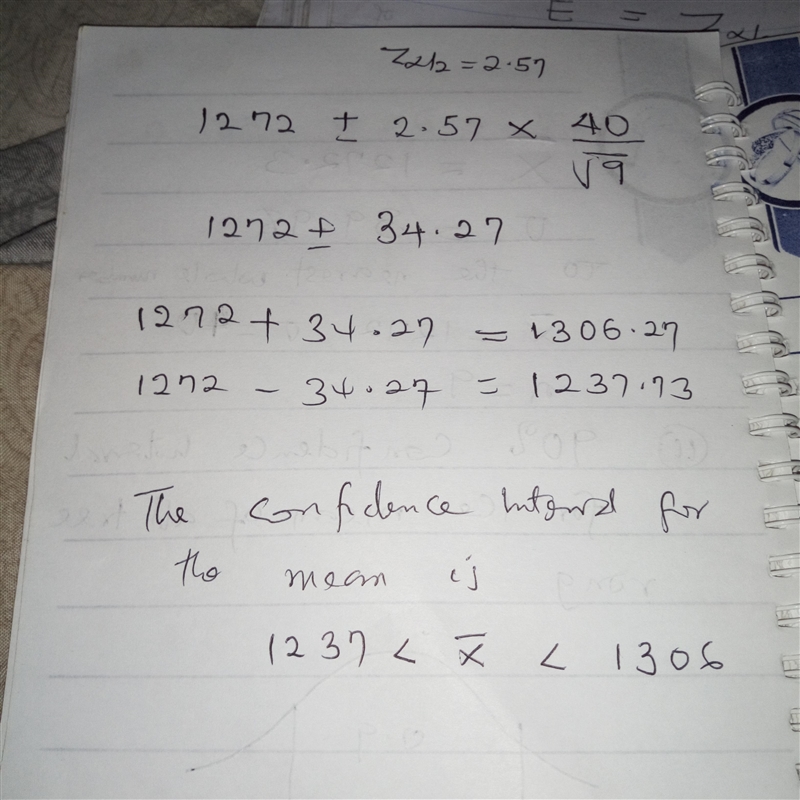 E = Zα/
Zα/2 = 2.57
1272 ± 2.57 × 40/√9
1272 ± 34.27
1272 + 34.27 = 1306.27
1272 - 34.27 = 1237.73
The confidence interval for
the mean is
1237 < x̄ < 1306